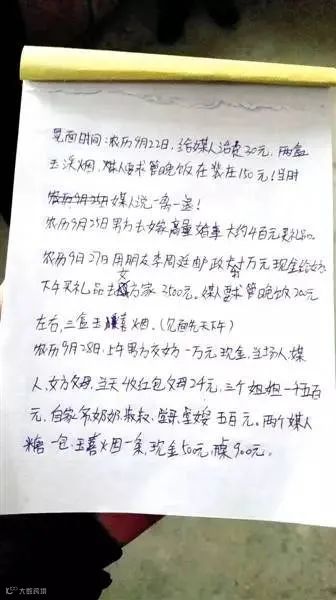 见面时间:农历9月22日,给媒人治费30元,两盒
玉溪烟,媒人要求管晚饭在柴庄150元!当时
农历9月25日媒人说一离一退!
农历9月25日男方去女家商量婚事大约4百元买礼品。
农历9月27日用朋友李周延邮政卡取1万元现金给女方
下午买礼品去女方家3500元。媒人要求管晚饭200元
左右,三盒玉喜烟。(见面先天下午)
农历9月28日上午男方交女方一万元现金,当场人,媒
人,女方父母,当天收红包父母24元,三个姐姐一千五百
元,自家爷奶奶,叔叔,五百元。两个媒人
糖一包,玉喜烟一条,现金500元,桌900元。
大皖资讯